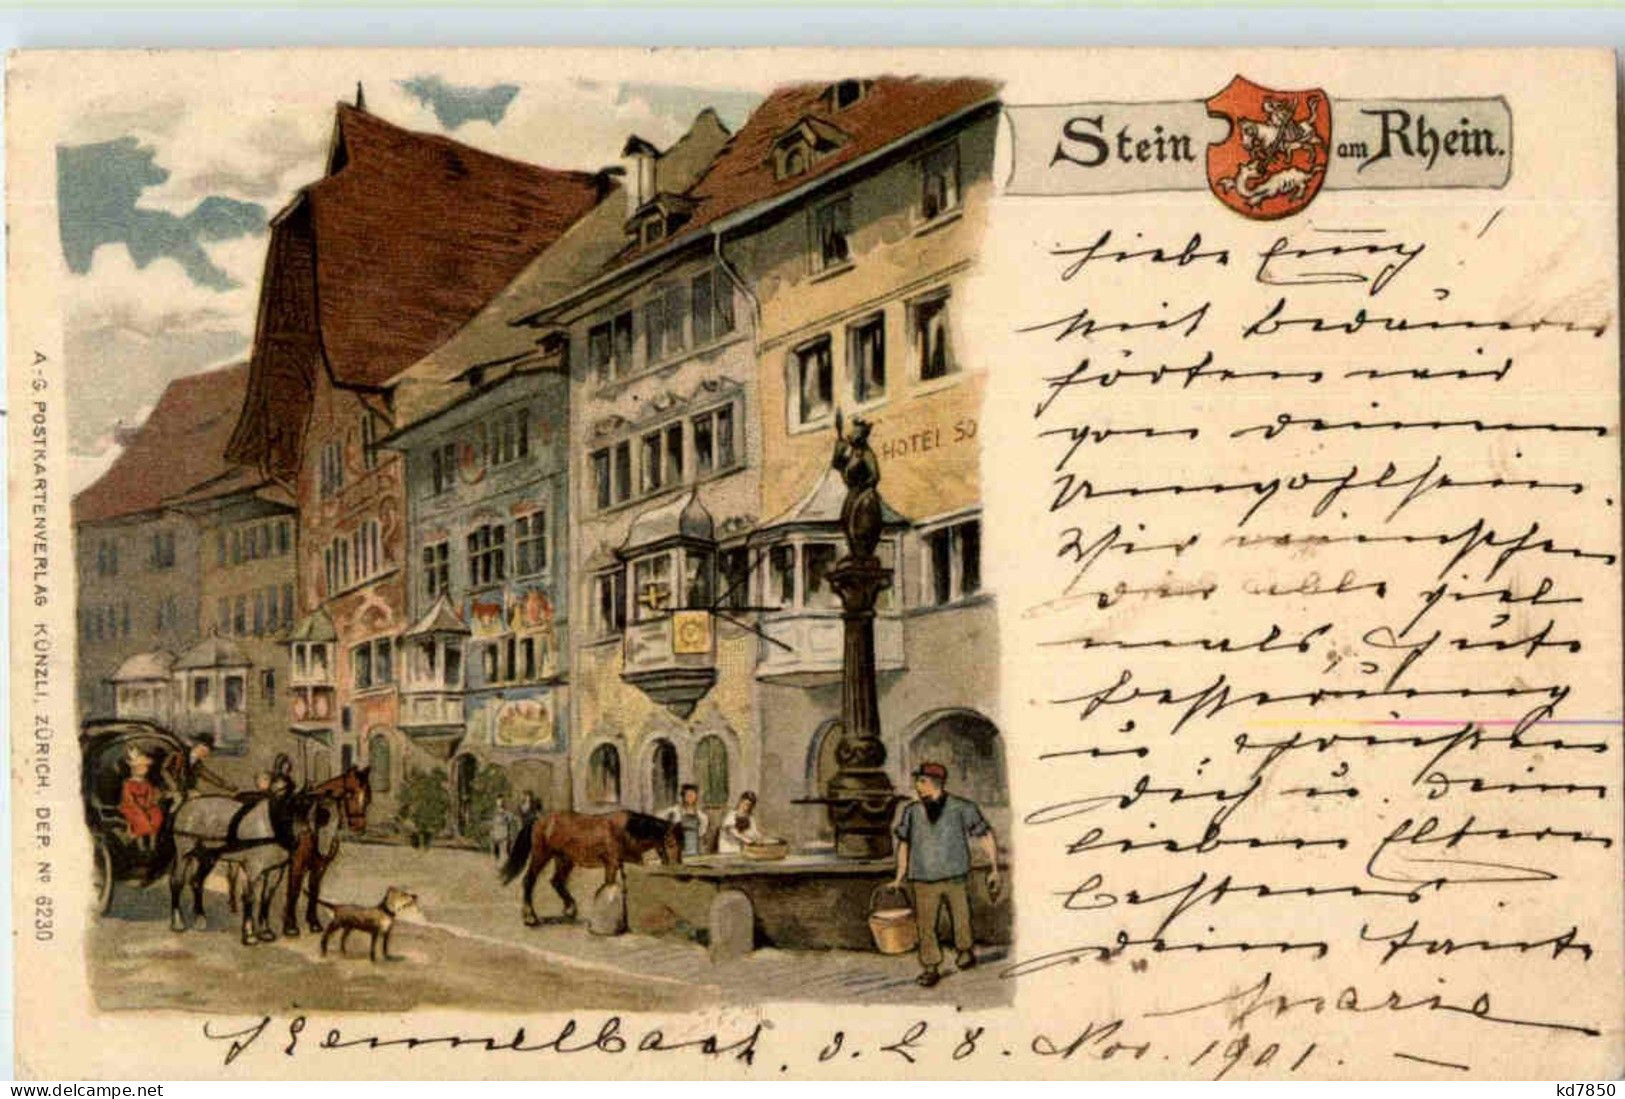 Stein am Rhein.
HOTEL SO
A.-G. POSTKARTENVERLAG KÜNZLI, ZÜRICH, DEP. Nº 6230
Liebe Emmy!
Mit Bedauern
hörten wir
von deinem
Unwohlsein.
Wir wünschen
dir alle viel
mals gute
Besserung
u. grüssen
Dich u. deine
lieben Eltern
bestens
deine Tante
Marie
d. 28. Nov. 1901.
delcampe.net
kd7850